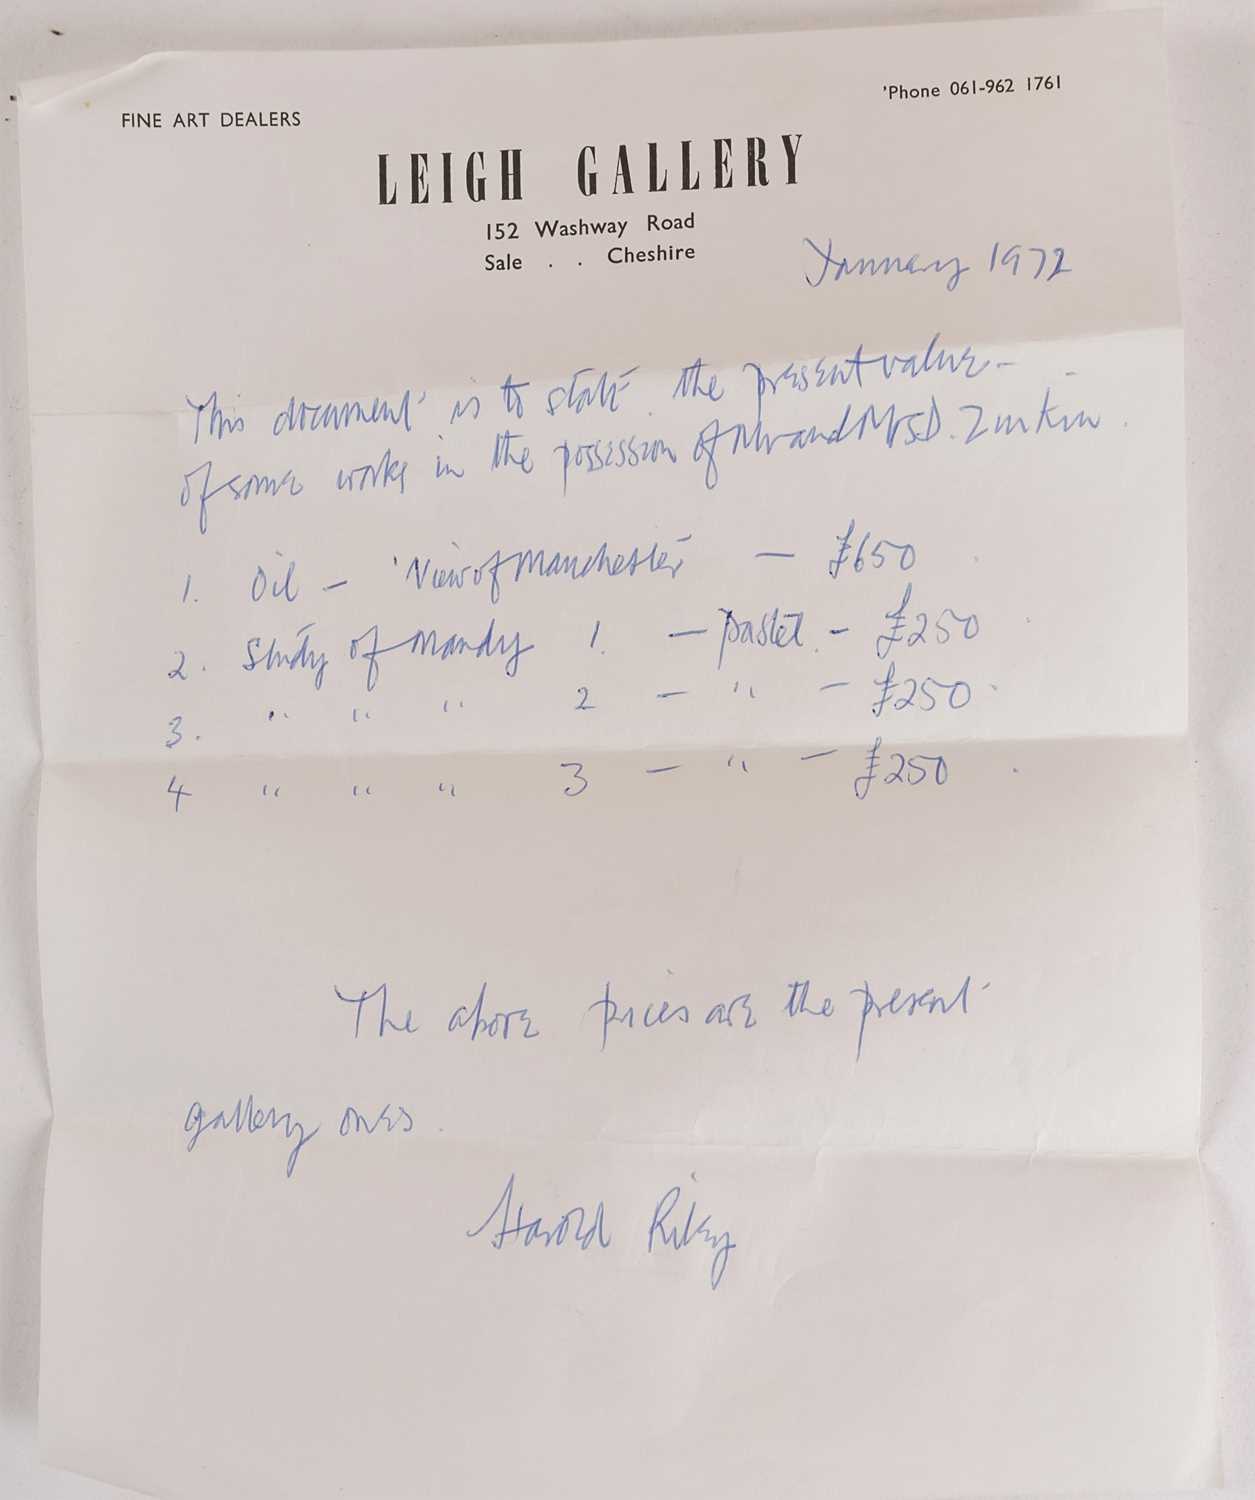 FINE ART DEALERS
'Phone 061-962 1761
LEIGH GALLERY
152 Washway Road
Sale . . Cheshire
January 1972
This document is to state the present value
of some works in the possession of Mr and Mrs D. Zinkin.
1. Oil - 'View of Manchester' — £650
2. Study of Mandy 1. — pastel - £250
3. " " " 2 — " — £250
4 " " " 3 — " — £250
The above prices are the present
gallery ones.
Harold Riley